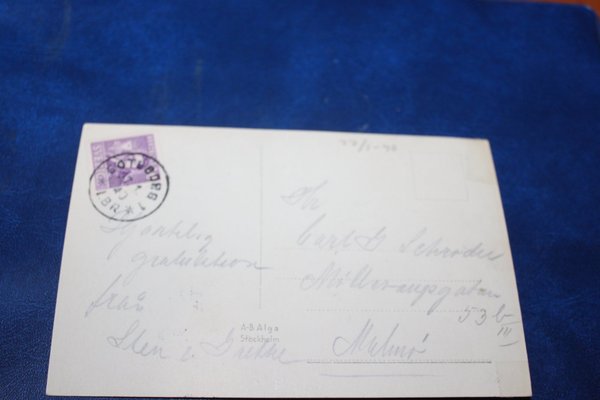 GÖTEBORG 1
Hjärtlig
gratulation
från
Sten o.
A-B Alga
Stockholm
Hr
Carl G Schröder
Möllevångsgatan
53 b
III
Malmö